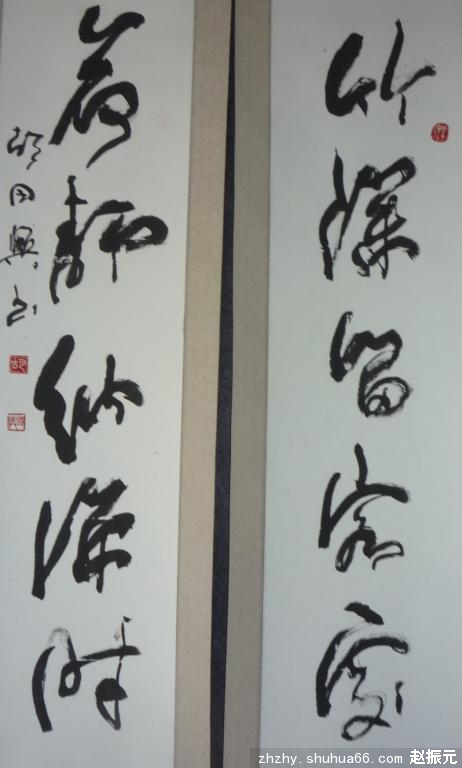 竹深留客處
荷靜納涼時
胡田興书
zhzhy.shuhua66.com 赵振元